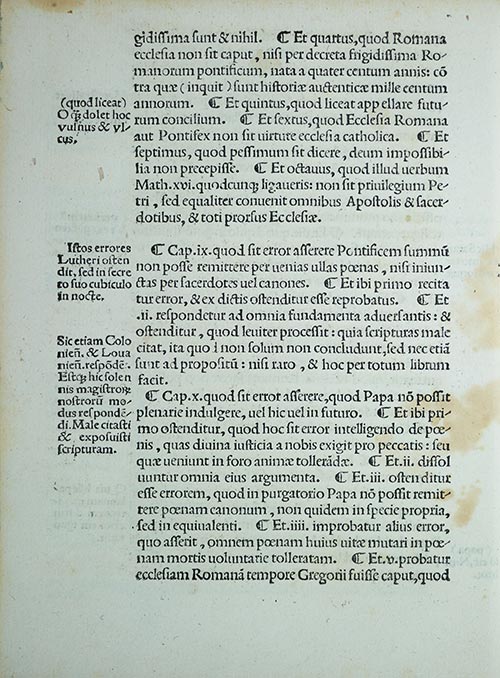 gidissima sunt & nihil. ⁋ Et quartus, quod Romana
ecclesia non sit caput, nisi per decreta frigidissima Ro-
manorum pontificum, nata a quater centum annis: cō
tra quæ (inquit) sunt historiæ austenticæ mille centum
annorum. ⁋ Et quintus, quod liceat appellare futu-
rum concilium. ⁋ Et sextus, quod Ecclesia Romana
aut Pontifex non sit uirtute ecclesia catholica. ⁋ Et
septimus, quod pessimum sit dicere, deum impossibi-
lia non precepisse. ⁋ Et octauus, quod illud uerbum
Math.xvi.quodcunq; ligaueris: non sit priuilegium Pe-
tri, sed equaliter conuenit omnibus Apostolis & sacer-
dotibus, & toti prorsus Ecclesiæ.
(quod liceat)
O q̄ dolet hoc
vulnus & vl-
cus.
⁋ Cap.ix.quod sit error asserere Pontificem summū
non posse remittere per uenias ullas pœnas, nisi iniun-
ctas per sacerdotes uel canones. ⁋ Et ibi primo recita
tur error, & ex dictis ostenditur esse reprobatus. ⁋ Et
.ii. respondetur ad omnia fundamenta aduersantis: &
ostenditur, quod leuiter processit: quia scripturas male
citat, ita quo i non solum non concludunt, sed nec etiā
sunt ad propositū: nisi raro, & hoc per totum librum
facit.
Istos errores
Lutheri osten
dit, sed in secre
to suo cubiculo
in nocte.
Sic etiam Colo
nien̄. & Loua
nien̄.respōdē.
Estq; hic solen
nis magistrorū
nostrorū mo-
dus respondē-
di. Male citasti
& exposuisti
scripturam.
⁋ Cap.x.quod sit error asserere, quod Papa nō possit
plenarie indulgere, uel hic uel in futuro. ⁋ Et ibi pri-
mo ostenditur, quod hoc sit error intelligendo de pœ-
nis, quas diuina iusticia a nobis exigit pro peccatis: seu
quæ ueniunt in foro animæ tollerādæ. ⁋ Et.ii. dissol
uuntur omnia eius argumenta. ⁋ Et.iii. ostenditur
esse errorem, quod in purgatorio Papa nō possit remit-
tere pœnam canonum, non quidem in specie propria,
sed in equiualenti. ⁋ Et.iiii. improbatur alius error,
quo asserit, omnem pœnam huius uitæ mutari in pœ-
nam mortis uoluntatie tolleratam. ⁋ Et.v.probatur
ecclesiam Romanā tempore Gregorii fuisse caput, quod